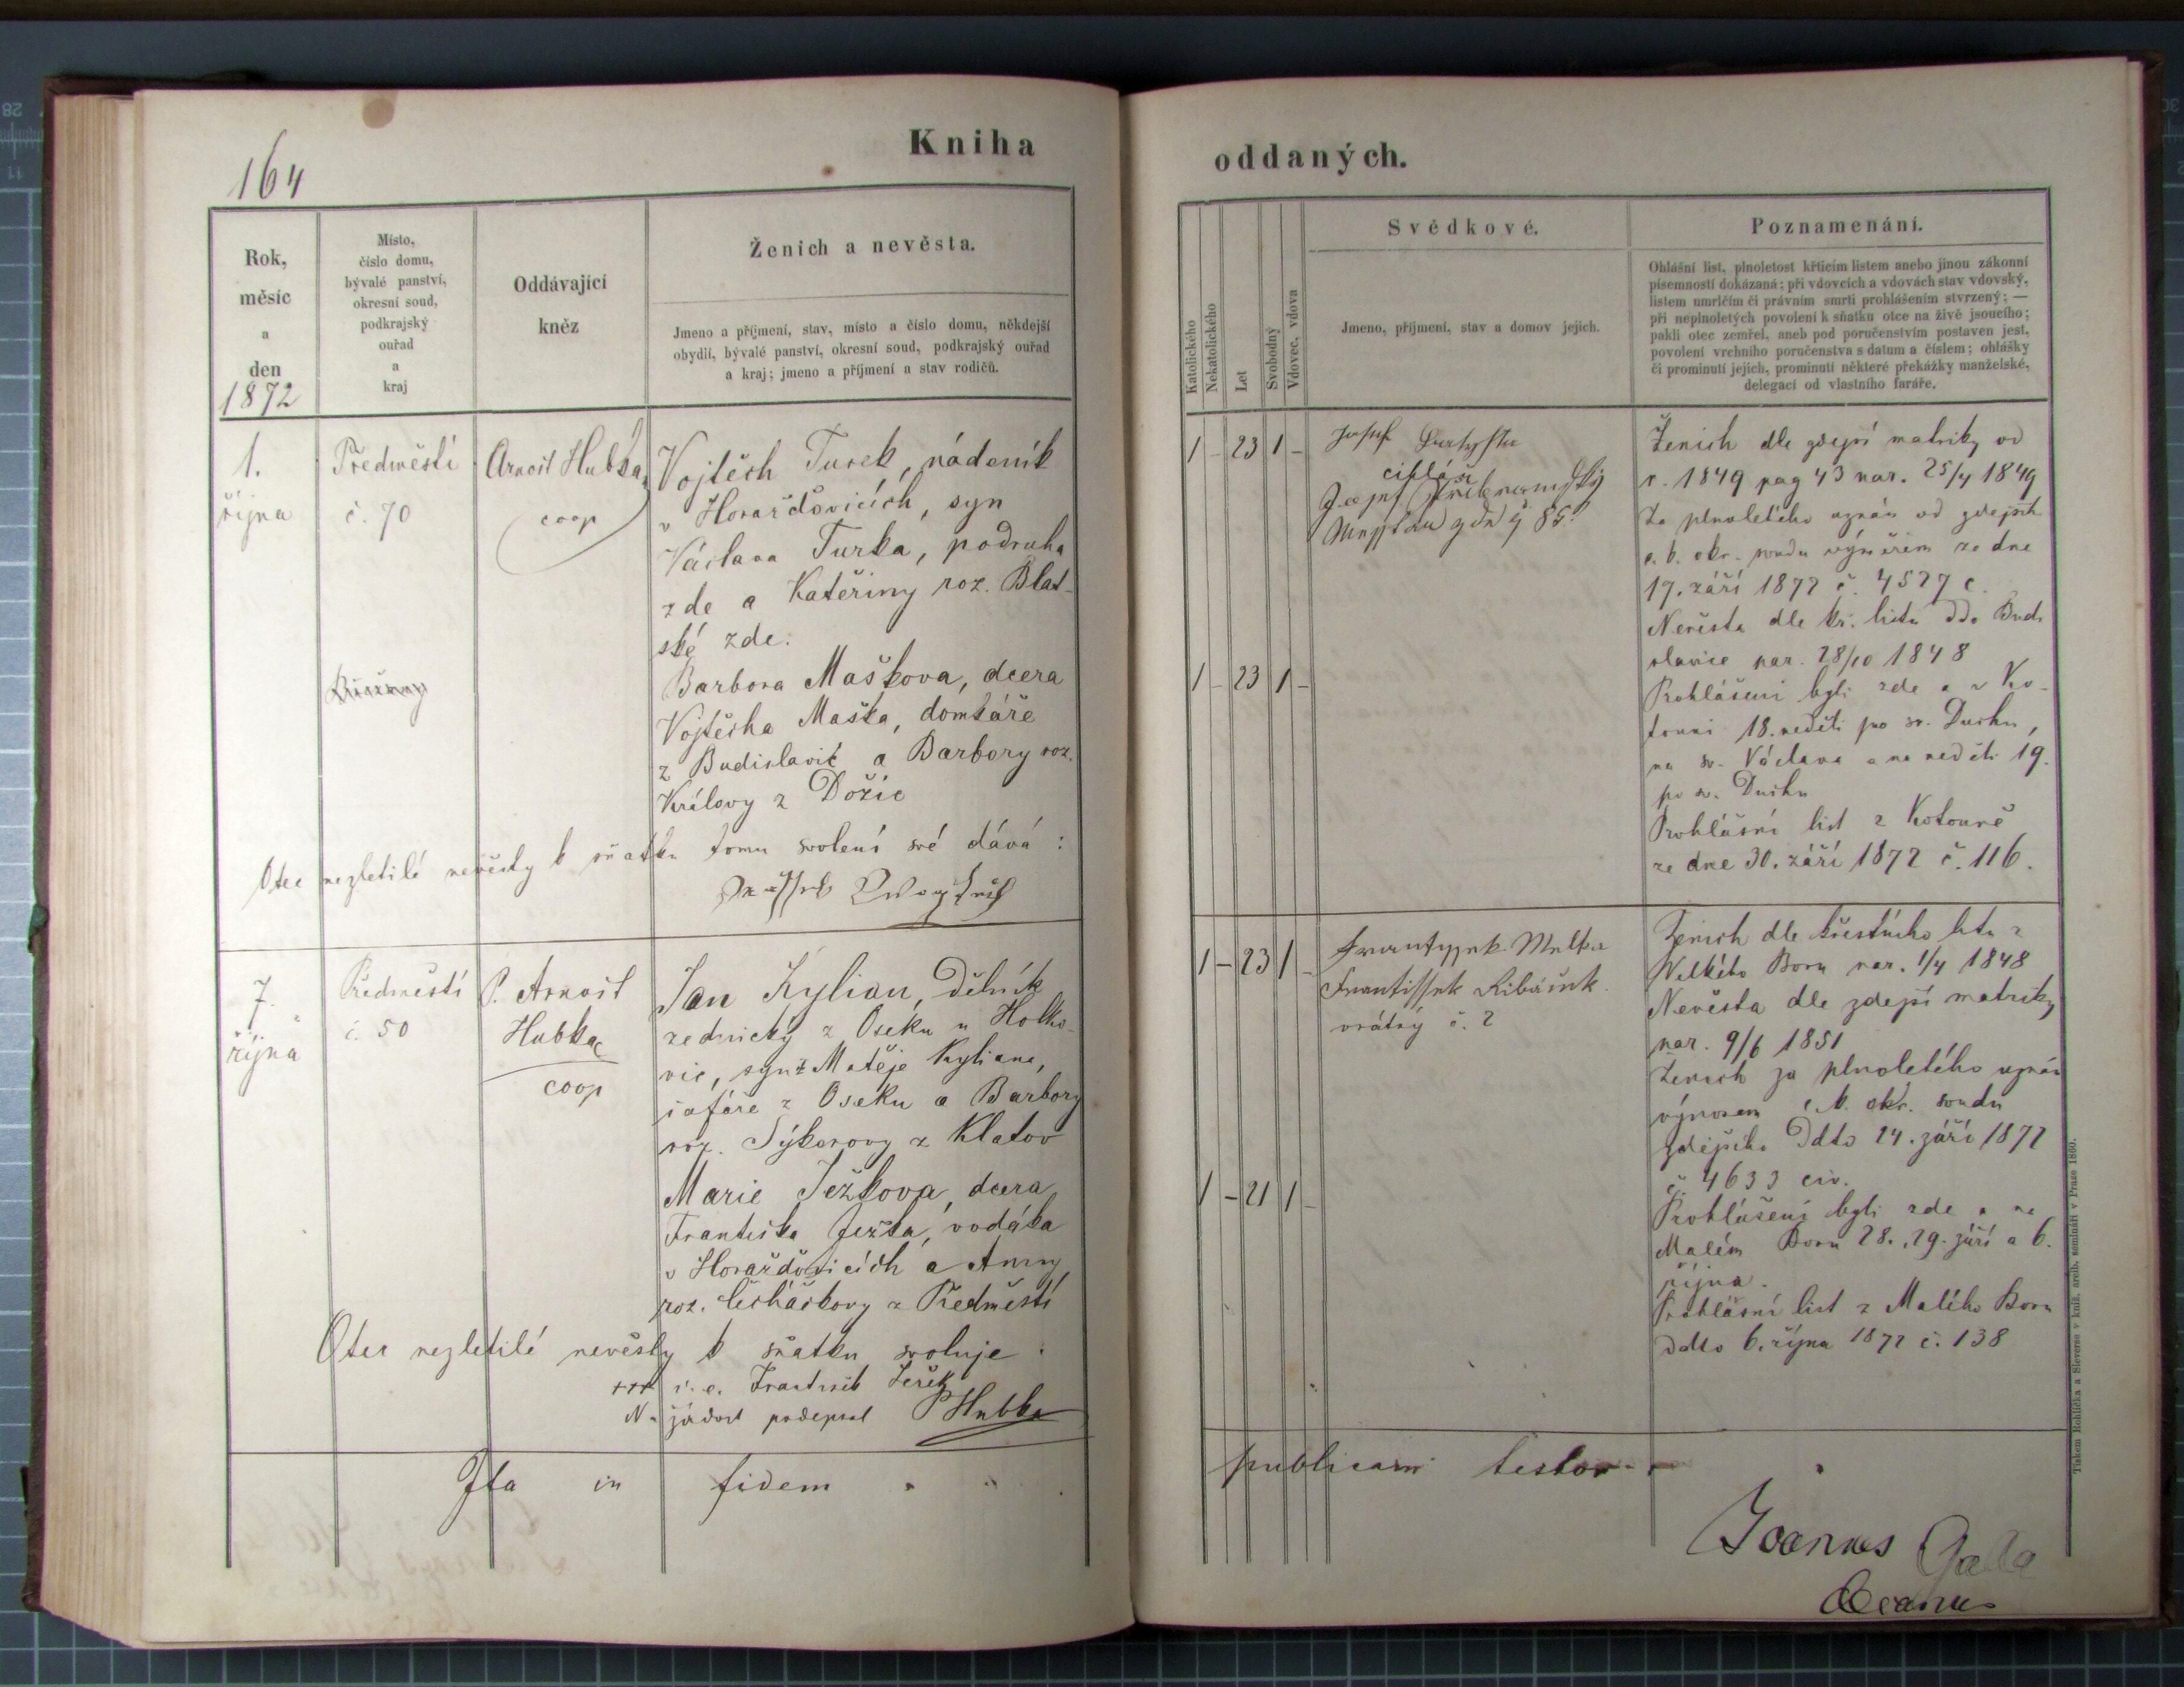 164
Kniha
Rok,
měsíc
a
den
1872
Místo,
číslo domu,
bývalé panství,
okresní soud,
podkrajský
ouřad
a
kraj
Oddávající
kněz
Ženich a nevěsta.
Jmeno a příjmení, stav, místo a číslo domu, někdejší
obydlí, bývalé panství, okresní soud, podkrajský ouřad
a kraj; jmeno a příjmení a stav rodičů.
1.
října
Předměstí
č. 70
Arnošt Hubka,
coop
Vojtěch Turek, nádeník
v Horažďovicích, syn
Václava Turka, podruha
zde a Kateřiny roz. Blat-
ské zde.
Barbora Maškova, dcera
Vojtěcha Maška, domkáře
z Budislavic a Barbory roz.
Královy z Dožic
Otec nezletilé nevěsty k sňatku tomu svolení své dává:
7.
října
Předměstí
č. 50
P. Arnošt
Hubka
coop
Jan Kylian, dělník
zednický z Oseku u Holko-
vic, syn Matěje Kyliana,
šafáře z Oseku a Barbory
roz. Sýkorovy z Klatov
Marie Ježkova, dcera
Františka Ježka, vodáka
v Horažďovicích a Anny
roz. Cicháčkovy z Předměstí
Otec nezletilé nevěsty k sňatku svoluje:
+++ i. e. František Ježek
Na žádost podepsal P Hubka
Ita in fidem
oddaných.
Katolického
Nekatolického
Let
Svobodný
Vdovec, vdova
Svědkové.
Jmeno, příjmení, stav a domov jejich.
Poznamenání.
Ohlášní list, plnoletost křticím listem anebo jinou zákonní
písemností dokázaná; při vdovcích a vdovách stav vdovský,
listem umrlčím či právním smrti prohlášením stvrzený; —
při neplnoletých povolení k sňatku otce na živě jsoucího;
pakli otec zemřel, aneb pod poručenstvím postaven jest,
povolení vrchního poručenstva s datum a číslem; ohlášky
či prominutí jejich, prominutí některé překážky manželské,
delegací od vlastního faráře.
1 - 23 1 -
Josef
cihlář
Josef
85.
Ženich dle zdejší matriky od
r. 1849 pag 43 nar. 25/4 1849
Za plnoletého uznán od zdejsíh
c. k. okr. soudu výměrem ze dne
17. září 1872 č. 4527 c.
Nevěsta dle kř. listu ddo Budi
slavice nar. 28/10 1848
1 - 23 1 -
Prohlášeni byli zde a v Ko-
touni 18. neděli po sv. Duchu,
na sv. Václava a na neděli 19.
po sv. Duchu
Prohlášní list z Kotouně
ze dne 30. září 1872 č. 116.
1 - 23 1 -
Frantyssek Melka
Frantissek
vrátný č. 2
Ženich dle křestního listu z
Velkého Boru nar. 1/4 1848
Nevěsta dle zdejší matriky
nar. 9/6 1851
Ženich za plnoletého uznán
výnosem c. k. okr. soudu
zdejšího ddto 24. září 1872
č. 4633 civ.
1 - 21 1 -
Prohlášeni byli zde a ve
Malém Boru 28., 29. září a 6.
října.
Prohlášní list z Malého Boru
ddto 6. října 1872 č. 138
publicam testor
Joannes Galla
Decanus
Tiskem Rohlíčka a Sieverse v kníž. arcib. semináři v Praze 1860.